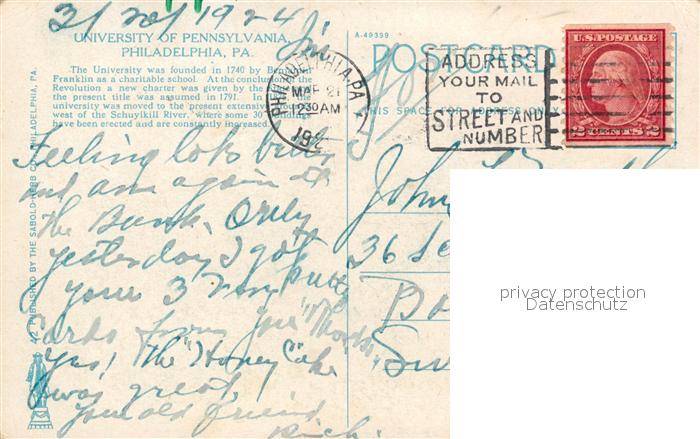 21 1924
UNIVERSITY OF PENNSYLVANIA,
PHILADELPHIA, PA.
The University was founded in 1740 by Benjamin
Franklin as a charitable school. At the conclusion of the
Revolution a new charter was given by the
the present title was assumed in 1791. In the
university was moved to the present extensive
west of the Schuylkill River, where some 30 buildings
have been erected and are constantly increased.
Feeling lots better
and am again at
the Bank. Only
yesterday I got
your 3 very
cards from you "Thanks"
yes! The "Honey Cake"
was great,
your old friend
Rich.
42 PUBLISHED BY THE SABOLD-HERB CO., PHILADELPHIA, PA.
A-49399
POSTCARD
THIS SPACE FOR ADDRESS ONLY
PHILADELPHIA, PA.
MAR 21
30 AM
192
ADDRESS
YOUR MAIL
TO
STREET AND
NUMBER
U.S. POSTAGE
2 CENTS 2
John
36
privacy protection
Datenschutz